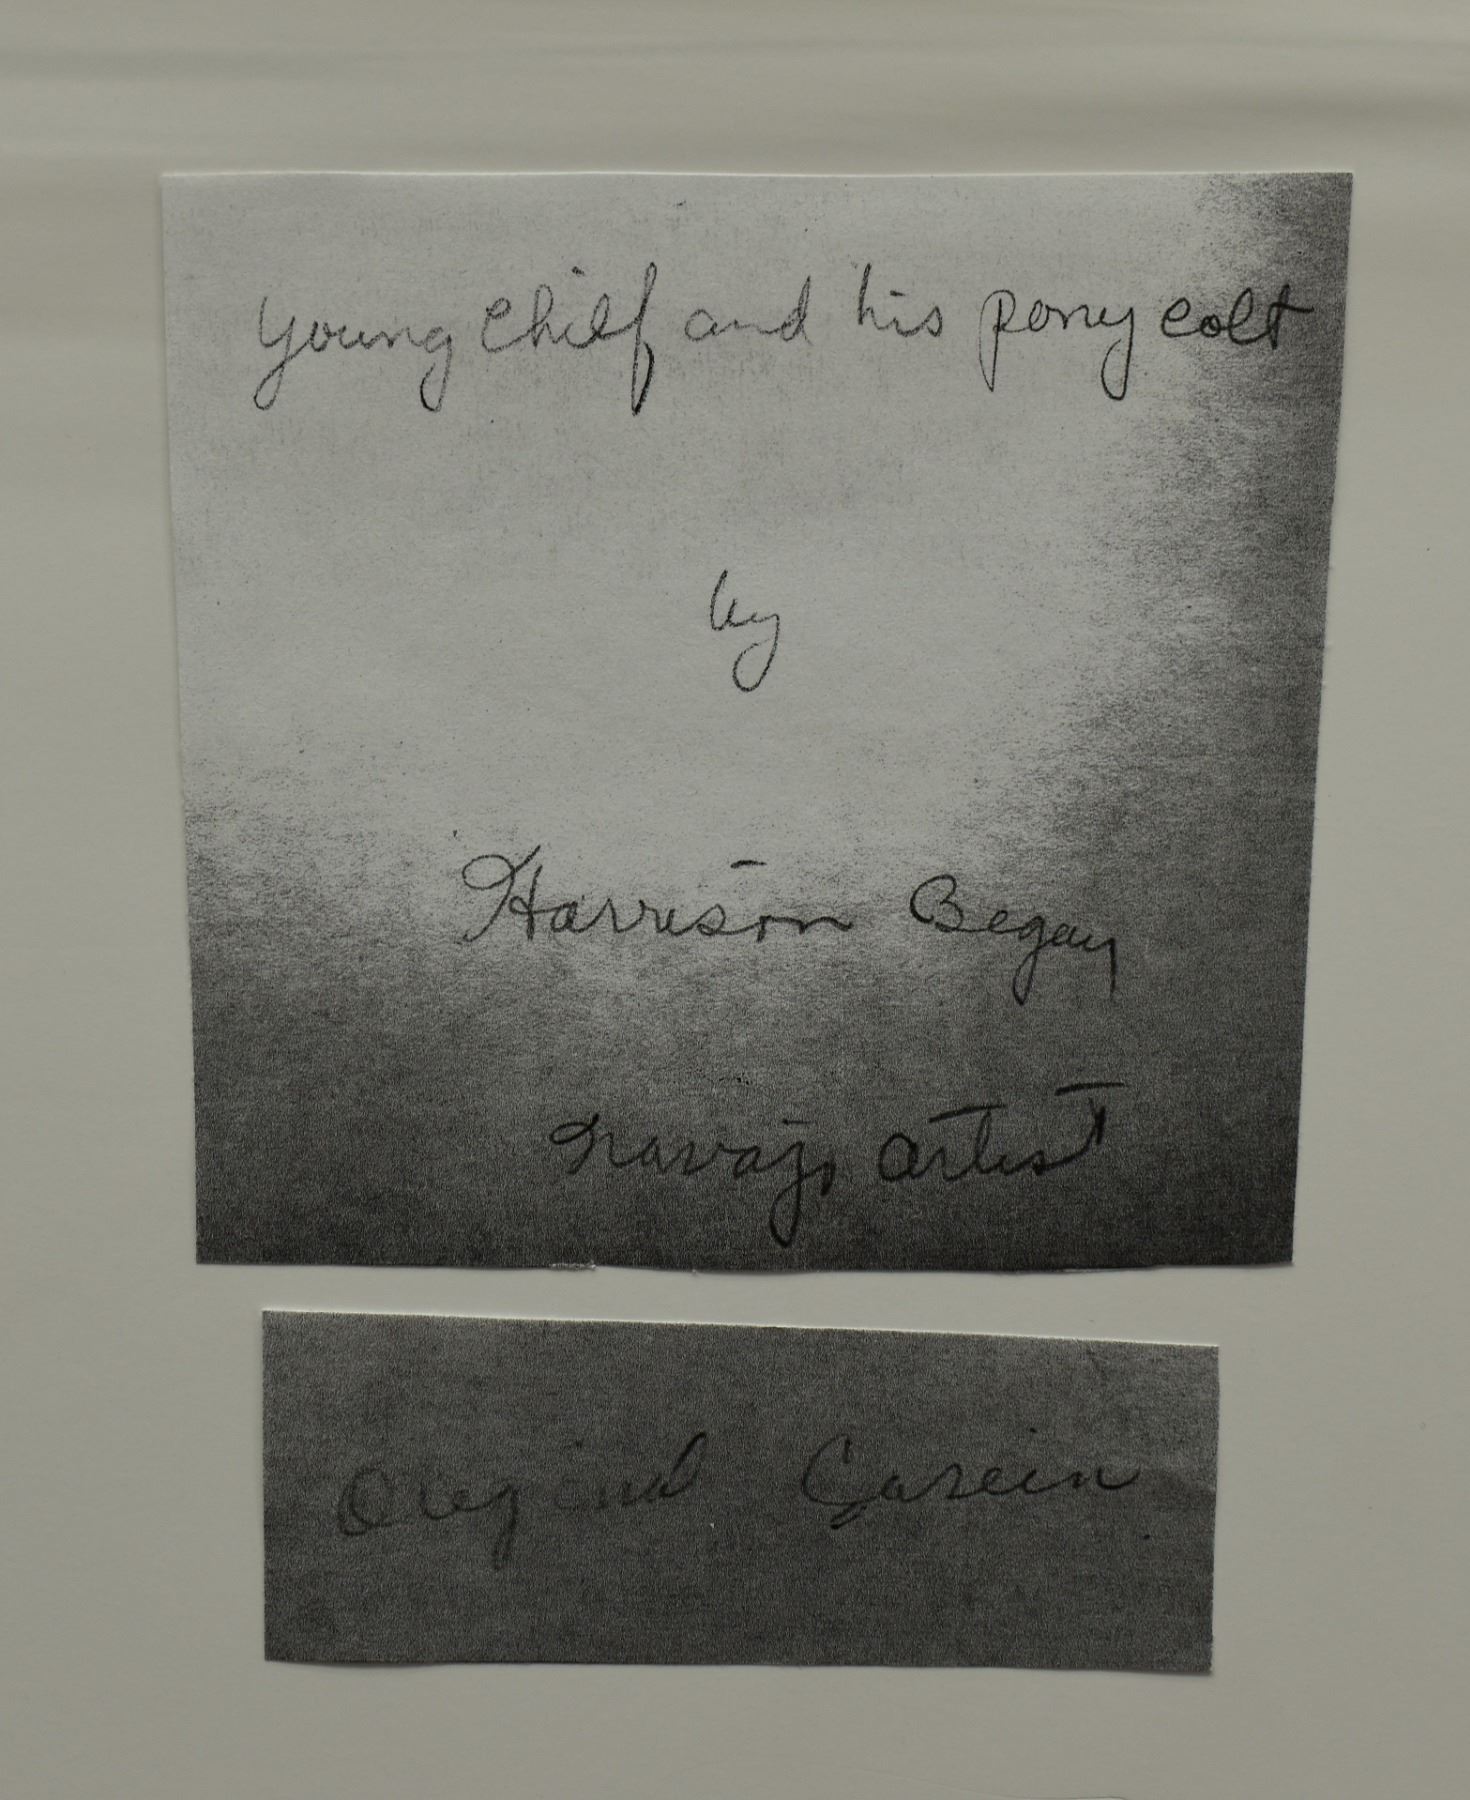 Young Chief and his pony colt
by
Harrison Begay
Navajo artist
Original Casein